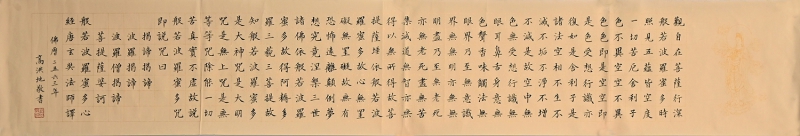 觀自在菩薩行深
般若波羅蜜多時
照見五蘊皆空度
一切苦厄舍利子
色不異空空不異
色色即是空空即
是色受想行識亦
復如是舍利子是
諸法空相不生不
滅不垢不淨不增
不減是故空中無
色無受想行識無
眼耳鼻舌身意無
色聲香味觸法無
眼界乃至無意識
界無無明亦無無
明盡乃至無老死
亦無老死盡無苦
集滅道無智亦無
得以無所得故菩
提薩埵依般若波
羅蜜多故心無罣
礙無罣礙故無有
恐怖遠離顛倒夢
想究竟涅槃三世
諸佛依般若波羅
蜜多故得阿耨多
羅三藐三菩提故
知般若波羅蜜多
是大神咒是大明
咒是無上咒是無
等等咒能除一切
苦真實不虛故說
般若波羅蜜多咒
即說咒曰
揭諦揭諦
波羅揭諦
波羅僧揭諦
菩提薩婆訶
般若波羅蜜多心
經唐玄奘法師譯
佛曆二五六三年
高洪 敬書